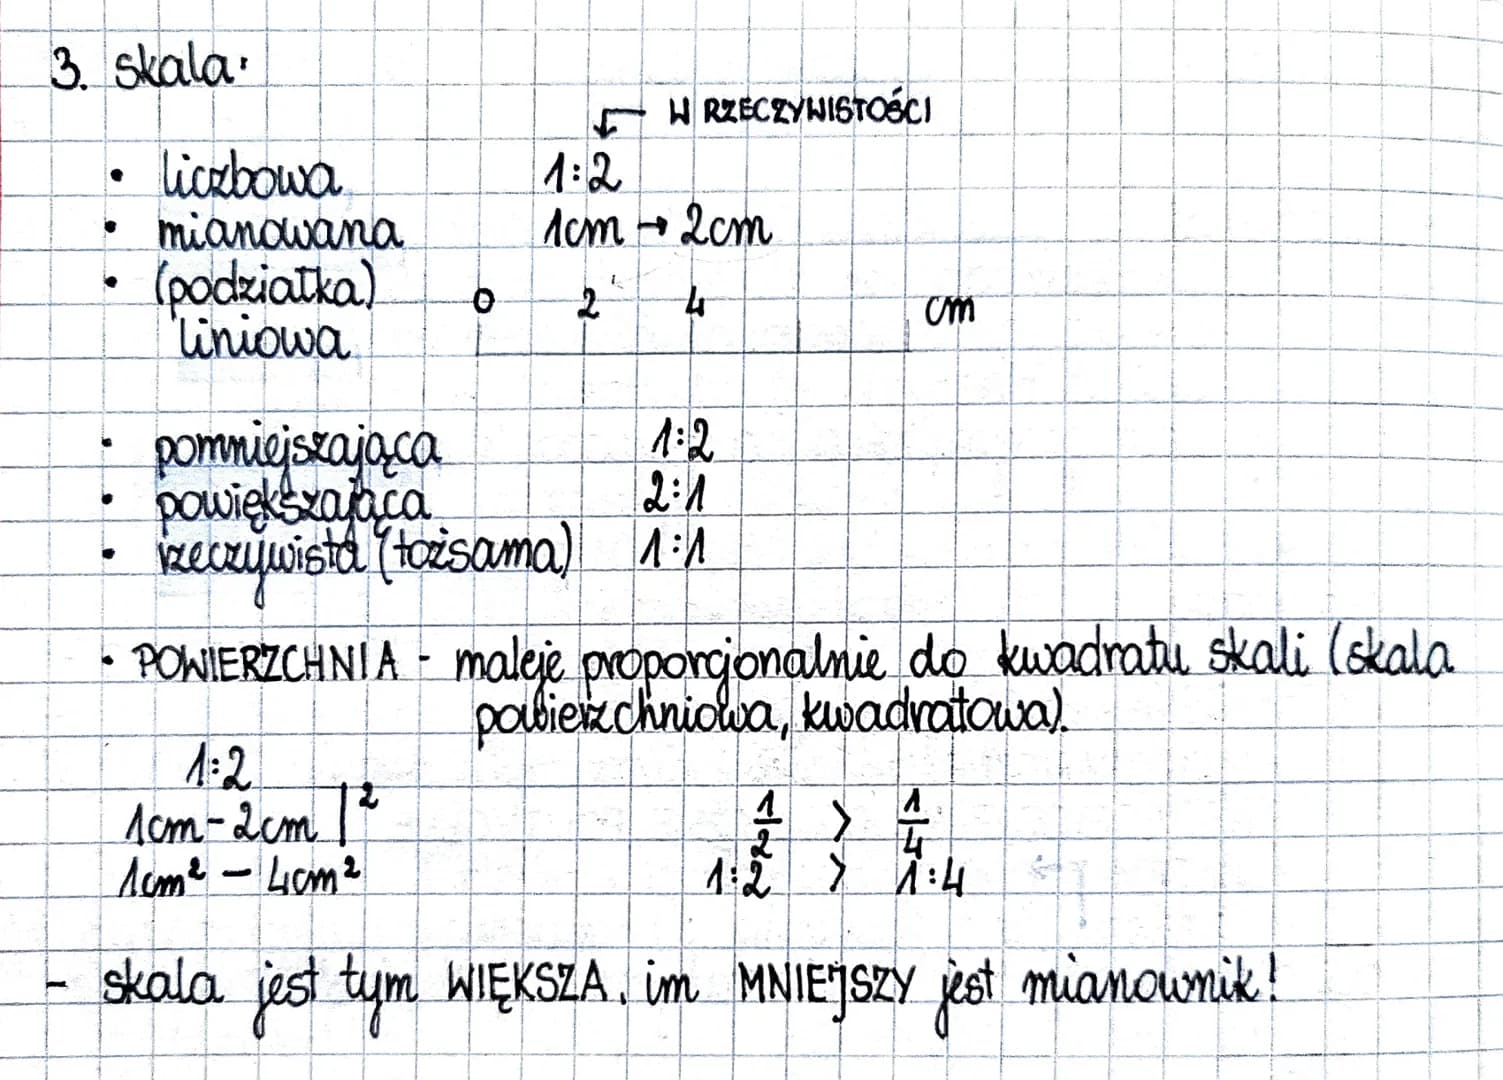 3. skala:
W RZECZYWISTOŚCI
• liczbowa 1:2
• mianowana 1cm → 2cm
• (podziałka) 0 2 4 cm
liniowa
• pomniejszająca 1:2
• powiększająca 2:1
• rzeczywista (tożsama) 1:1
• POWIERZCHNIA - maleje proporcjonalnie do kwadratu skali (skala
powierzchniowa, kwadratowa).
1:2
1cm - 2cm |²
1cm² - 4cm²
1/2 > 1/4
1:2 > 1:4
- skala jest tym WIĘKSZA, im MNIEJSZY jest mianownik!